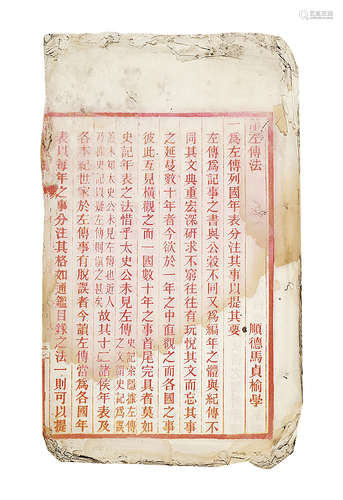 左傳法
順德馬貞榆學
一爲左傳列國年表分注其事以提其要
左傳爲記事之書與公穀不同又爲編年之體與紀傳不
同其文典重宏深研求不窮往往有玩悅其文而忘其事
之延蔓數十年者今欲於一年之中直觀之而各國之事
彼此互見橫觀之而一國數十年之事首尾完具者莫如
史記年表之法惜乎太史公未見左傳史記索隱據左傳之文謂史記爲誤
未知史公未見左傳也近人乃據史記以疑左傳則傎之甚矣故其十二諸侯年表及
各本紀世家於左傳事有脫誤者今讀左傳當爲各國年
表以每年之事分注其格如通鑑目錄之法一則可以提